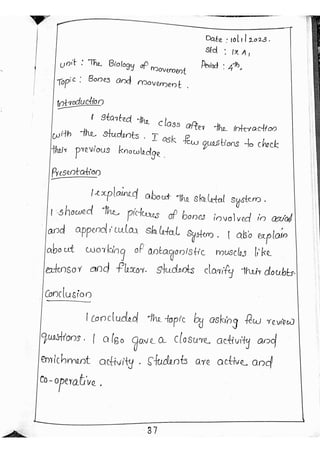 Date : 10|1|2023.
Std : IX A,
Unit : The Biology of movement
Period : 4th,
Topic : Bones and movement .
Introduction
I started the class after the interaction
with the students . I ask few questions to check
their previous knowledge .
Presentation
I explained about the skeletal system.
I showed the pictures of bones involved in axial
and appendicular skeletal system . I also explain
about working of antagonistic muscles like
extensor and flexor. students clarify their doubts.
Conclusion
I concluded the topic by asking few review
questions. I also gave a closure activity and
enrichment activity . Students are active and
co-operative .
37